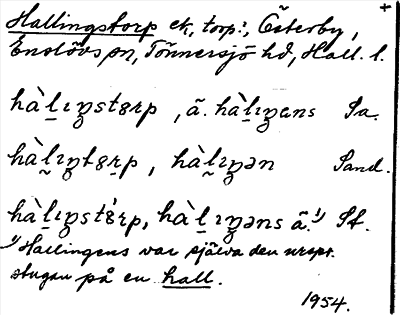 Hallingstorp ek, torp:, Österby, +
Enslövs sn, Tönnersjö hd, Hall. l.
hàl̠ɪŋstɵrp, ä. hàl̠ɪŋens Sa.
hàl̠ɪŋtɵr̠p, hàl̠ɪŋən Sand.
hàl̠ɪŋstɵ́rp, hàl̠ɪŋəns ä.¹⁾ St.
¹⁾Hallingens var själva den urspr.
stugan på en hall.
1954.